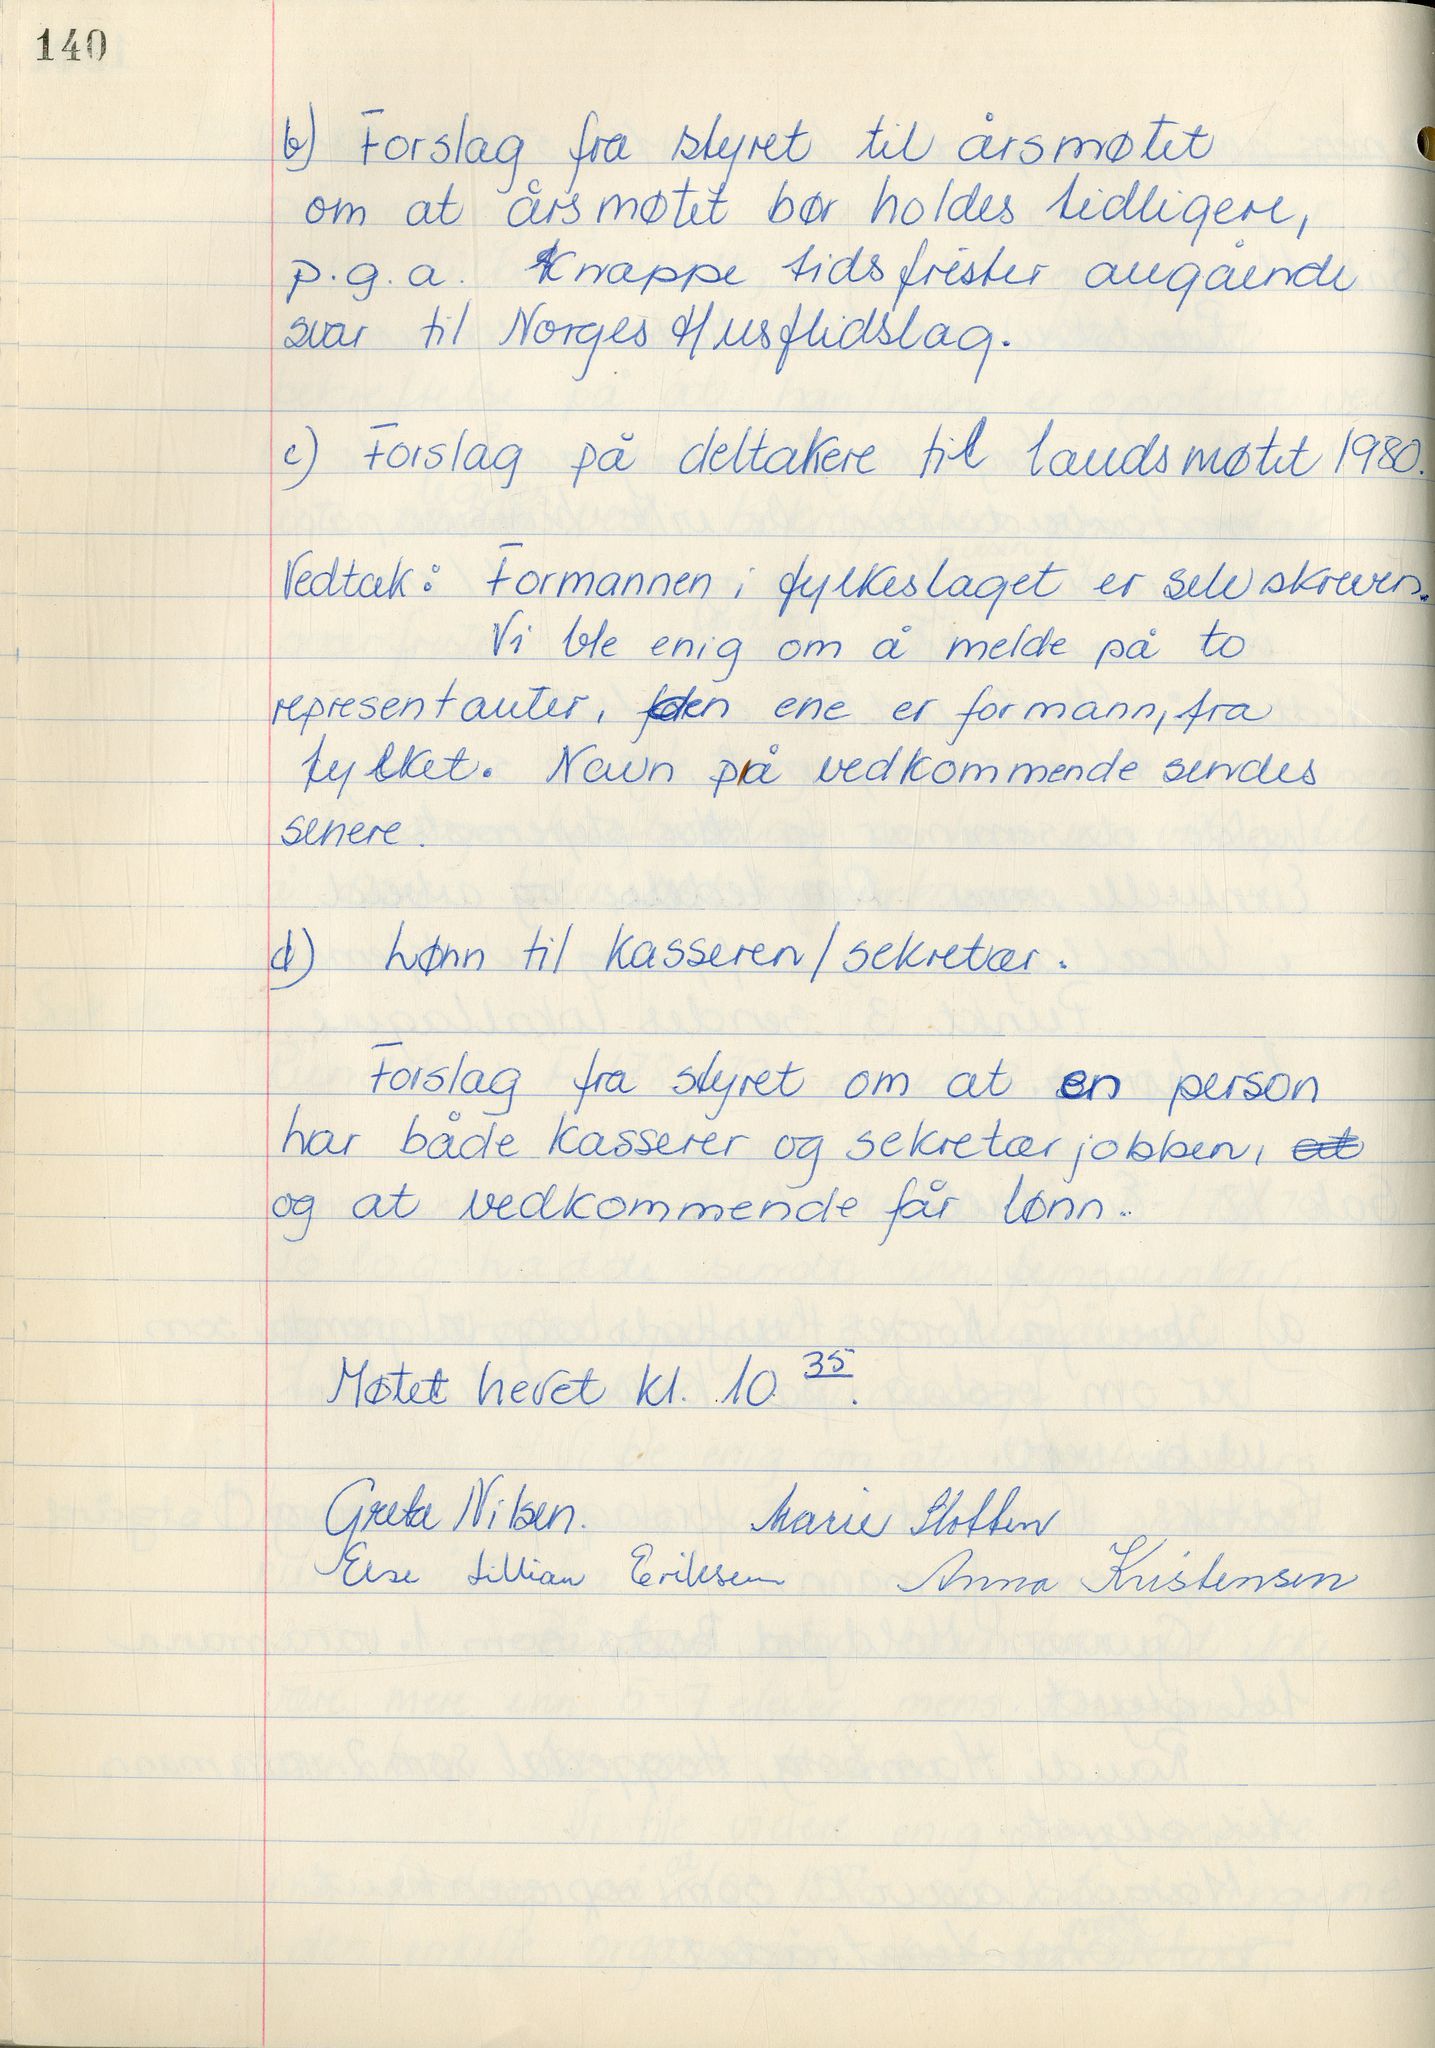 140
b) Forslag fra styret til årsmøtet
om at årsmøtet bør holdes tidligere,
p.g.a. knappe tidsfrister angående
svar til Norges Husflidslag.
c) Forslag på deltakere til landsmøtet 1980.
Vedtak: Formannen i fylkeslaget er selvskreven.
Vi ble enig om å melde på to
representanter, den ene er formann, fra
fylket. Navn på vedkommende sendes
senere.
d) Lønn til kasseren/sekretær.
Forslag fra styret om at en person
har både kasserer og sekretær jobben, at
og at vedkommende får lønn.
Møtet hevet kl. 10 35.
Greta Nilsen. Marie Slotten
Else Lillian Eriksen Anna Kristensen